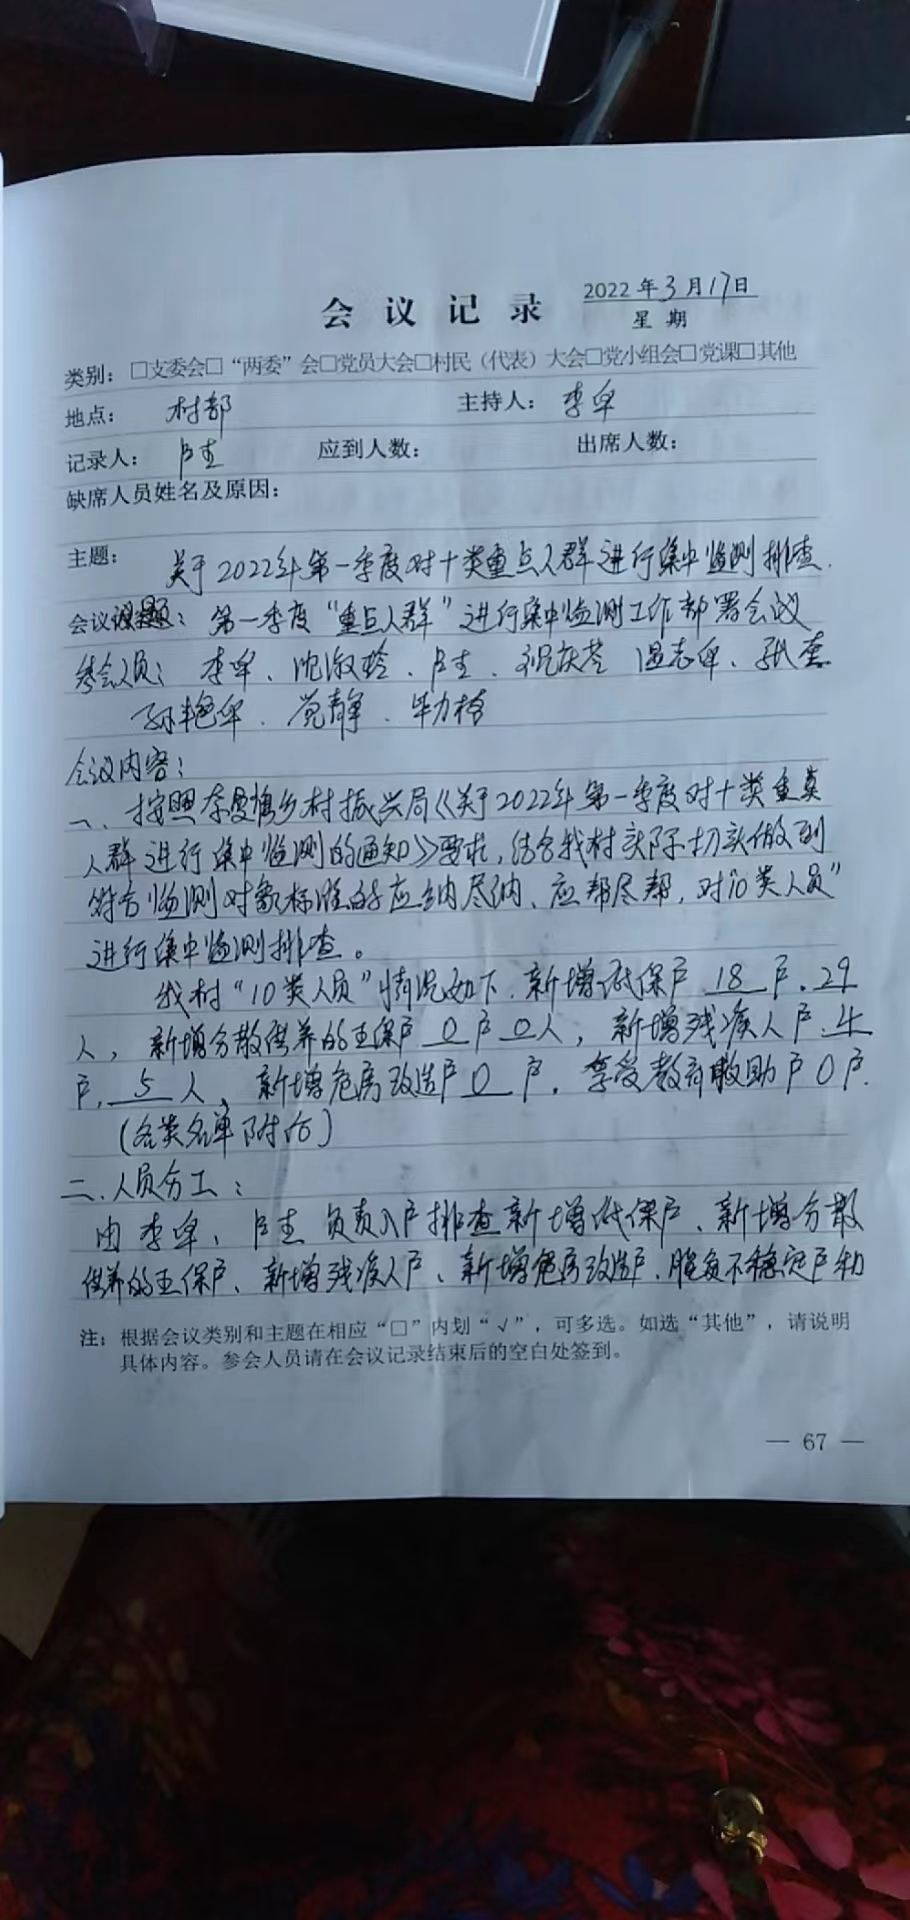 会议记录 2022年3月17日
星期
类别：□支委会□“两委”会□党员大会□村民（代表）大会□党小组会□党课□其他
地点： 村部 主持人： 李
记录人： 应到人数： 出席人数：
缺席人员姓名及原因：
主题： 关于2022年第一季度对十类重点人群进行集中监测排查.
会议议题：第一季度“重点人群”进行集中监测工作部署会议
参会人员： 李 、沈淑玲、 、 、张
静
会议内容：
一、按照 乡村振兴局《关于2022年第一季度对十类重点
人群进行集中监测的通知》要求，结合我村实际切实做到
符合监测对象标准的应纳尽纳、应帮尽帮，对“10类人员”
进行集中监测排查。
我村“10类人员”情况如下，新增低保户 18 户，29
人，新增分散供养的五保户 0 户 0 人，新增残疾人户 4
户，5 人、新增危房改造户 0 户，享受教育救助户0户.
(各类名单附后)
二、人员分工：
由李 、 负责入户排查新增低保户、新增分散
供养的五保户、新增残疾人户、新增危房改造户、脱贫不稳定户和
注：根据会议类别和主题在相应“□”内划“√”，可多选。如选“其他”，请说明
具体内容。参会人员请在会议记录结束后的空白处签到。
— 67 —